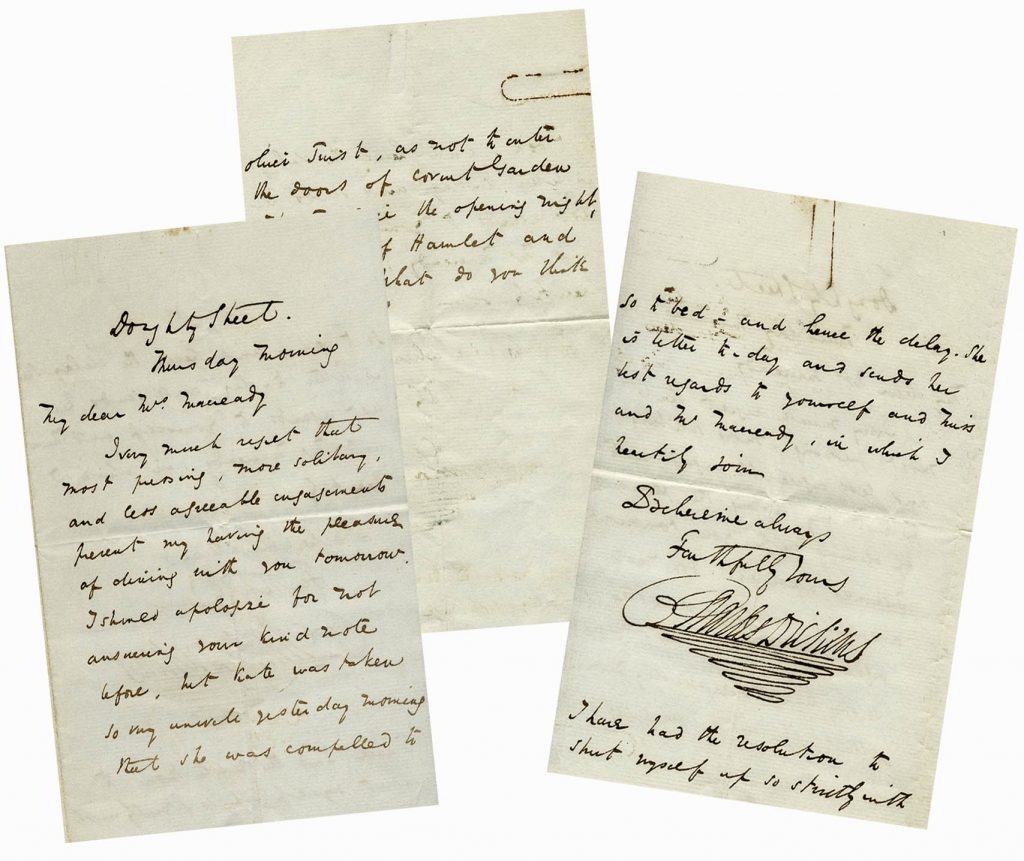 Doughty Street.
Thursday Morning
My dear Mrs. Macready
I very much regret that
most pressing, more solitary,
and less agreeable engagements
prevent my having the pleasure
of dining with you tomorrow.
I should apologize for not
answering your kind note
before, but Kate was taken
so very unwell yesterday morning
that she was compelled to
go to bed – and hence the delay. She
is better to-day and sends her
best regards to yourself and Miss
and Mr Macready, in which I
heartily join
Believe me always
Faithfully Yours
Charles Dickens
I have had the resolution to
shut myself up so strictly with
Oliver Twist, as not to enter
the doors of Covent Garden
the opening night,
Hamlet and
What do you think